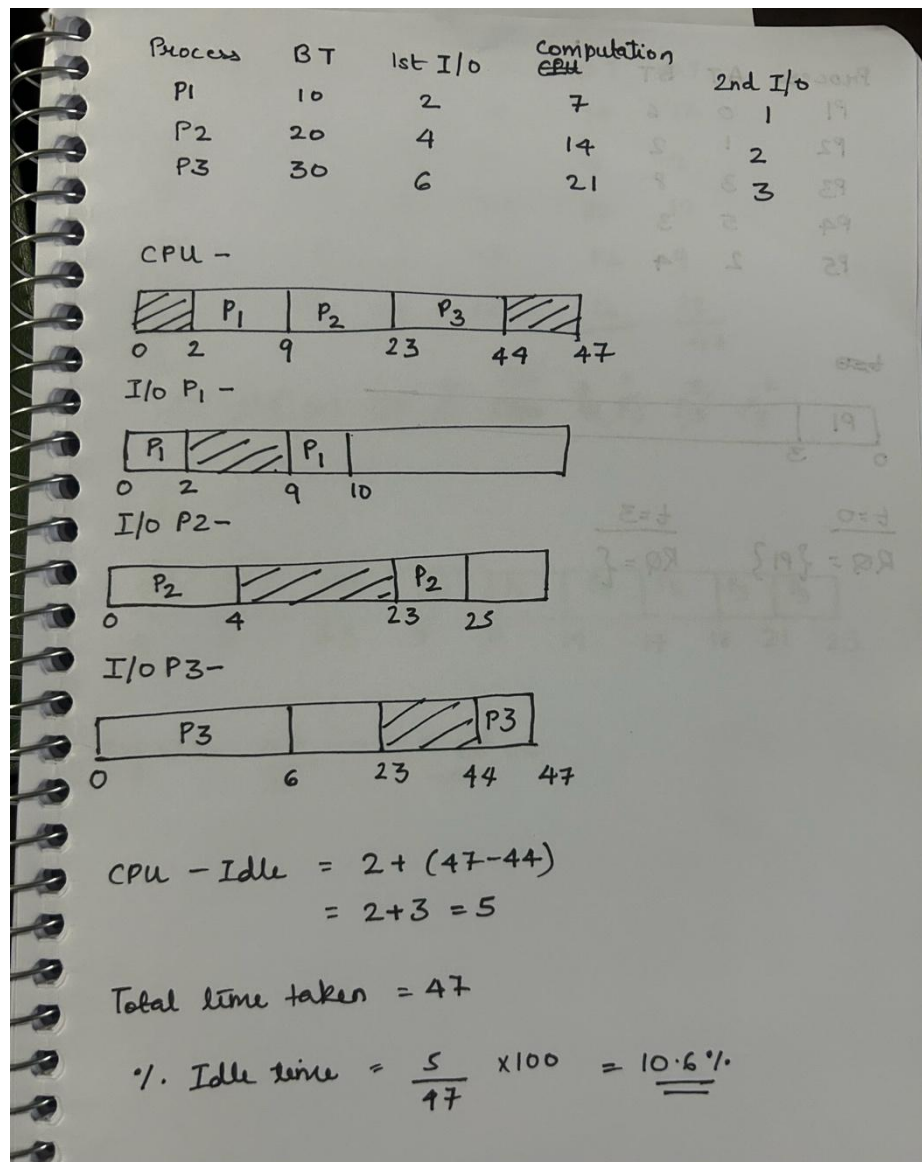 Process BT 1st I/O Computation 2nd I/o
P1 10 2 7 1
P2 20 4 14 2
P3 30 6 21 3
CPU -
P1 P2 P3
0 2 9 23 44 47
I/o P1 -
P1 P1
0 2 9 10
I/o P2-
P2 P2
0 4 23 25
I/o P3-
P3 P3
0 6 23 44 47
CPU - Idle = 2 + (47-44)
= 2+3 = 5
Total time taken = 47
%. Idle time = 5/47 x100 = 10.6%.